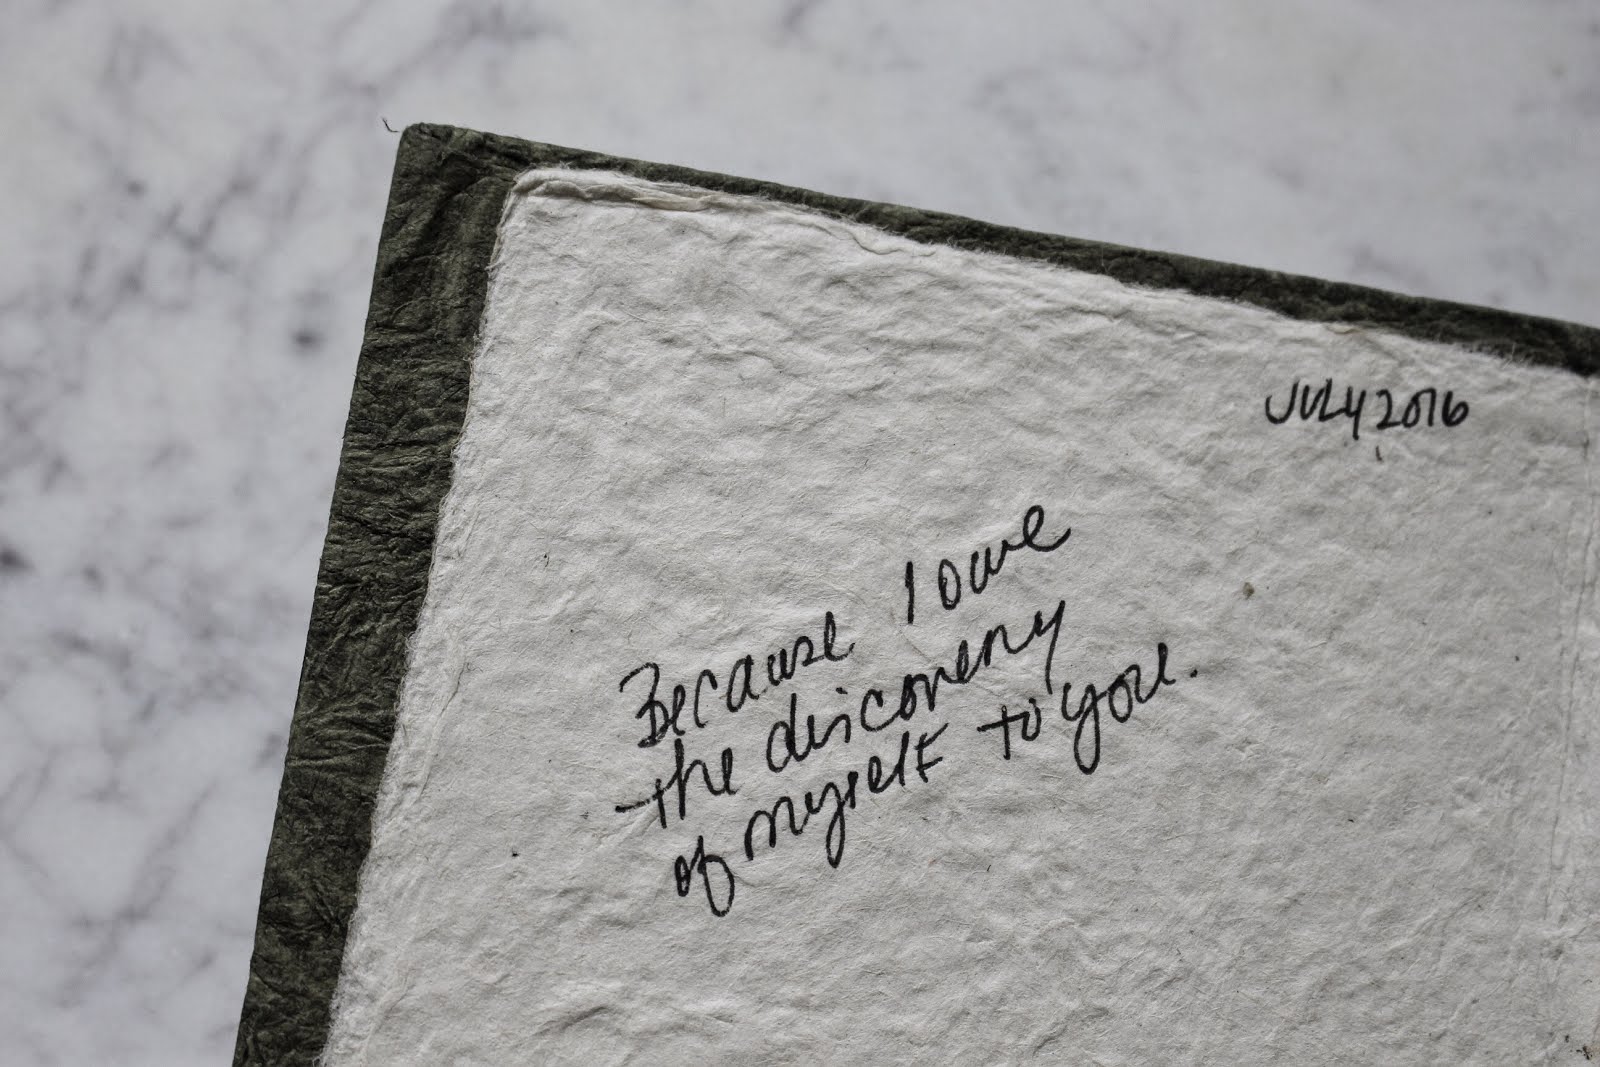 JULY 2016
Because I owe
the discovery
of myself to you.